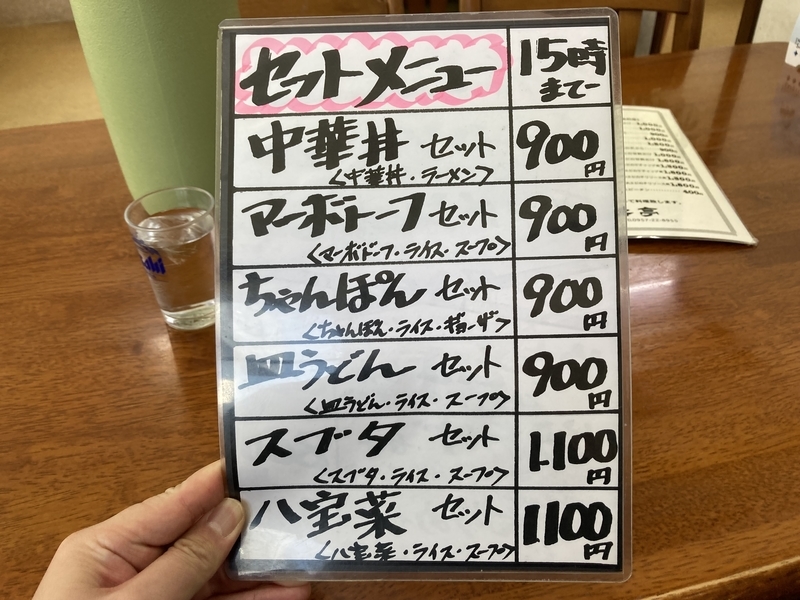 セットメニュー
15時まで
中華丼 セット 900円
<中華丼・ラーメン>
マーボドーフ セット 900円
<マーボドーフ・ライス・スープ>
ちゃんぽん セット 900円
<ちゃんぽん・ライス・ギョーザ>
皿うどん セット 900円
<皿うどん・ライス・スープ>
スブタ セット 1100円
<スブタ・ライス・スープ>
八宝菜 セット 1100円
<八宝菜・ライス・スープ>